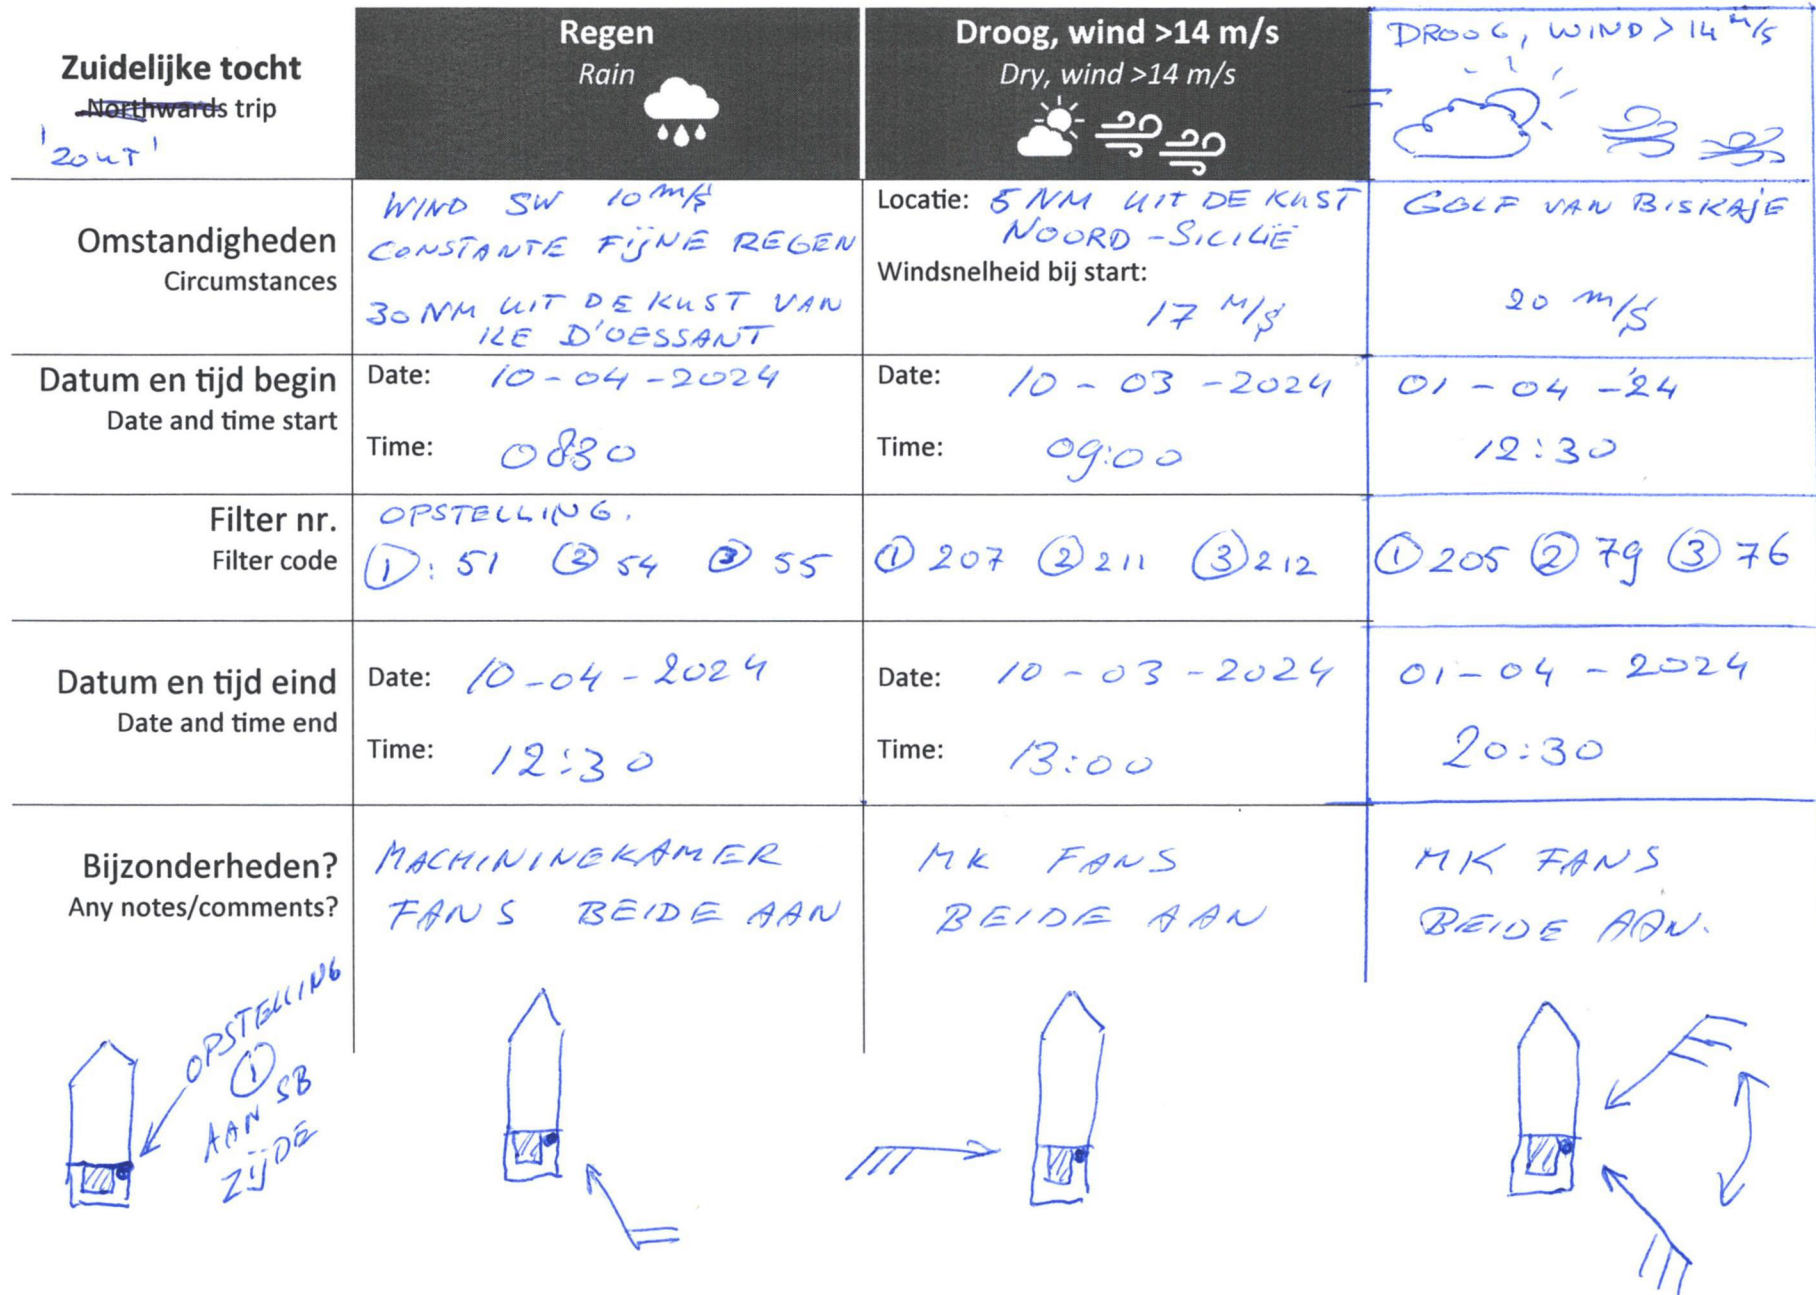 Zuidelijke tocht
Northwards trip
'ZOUT'
Regen
Rain
Droog, wind >14 m/s
Dry, wind >14 m/s
DROOG, WIND > 14 m/s
Omstandigheden
Circumstances
WIND SW 10 m/s
CONSTANTE FIJNE REGEN
30 NM UIT DE KUST VAN
ILE D'OESSANT
Locatie: 5 NM UIT DE KUST
NOORD-SICILIË
Windsnelheid bij start:
17 M/S
GOLF VAN BISKAJE
20 m/s
Datum en tijd begin
Date and time start
Date: 10-04-2024
Time: 0830
Date: 10-03-2024
Time: 09:00
01-04-'24
12:30
Filter nr.
Filter code
OPSTELLING.
①: 51 ② 54 ③ 55
① 207 ② 211 ③ 212
① 205 ② 79 ③ 76
Datum en tijd eind
Date and time end
Date: 10-04-2024
Time: 12:30
Date: 10-03-2024
Time: 13:00
01-04-2024
20:30
Bijzonderheden?
Any notes/comments?
MACHININEKAMER
FANS BEIDE AAN
MK FANS
BEIDE AAN
MK FANS
BEIDE AAN.
OPSTELLING
①
AAN SB
ZIJDE